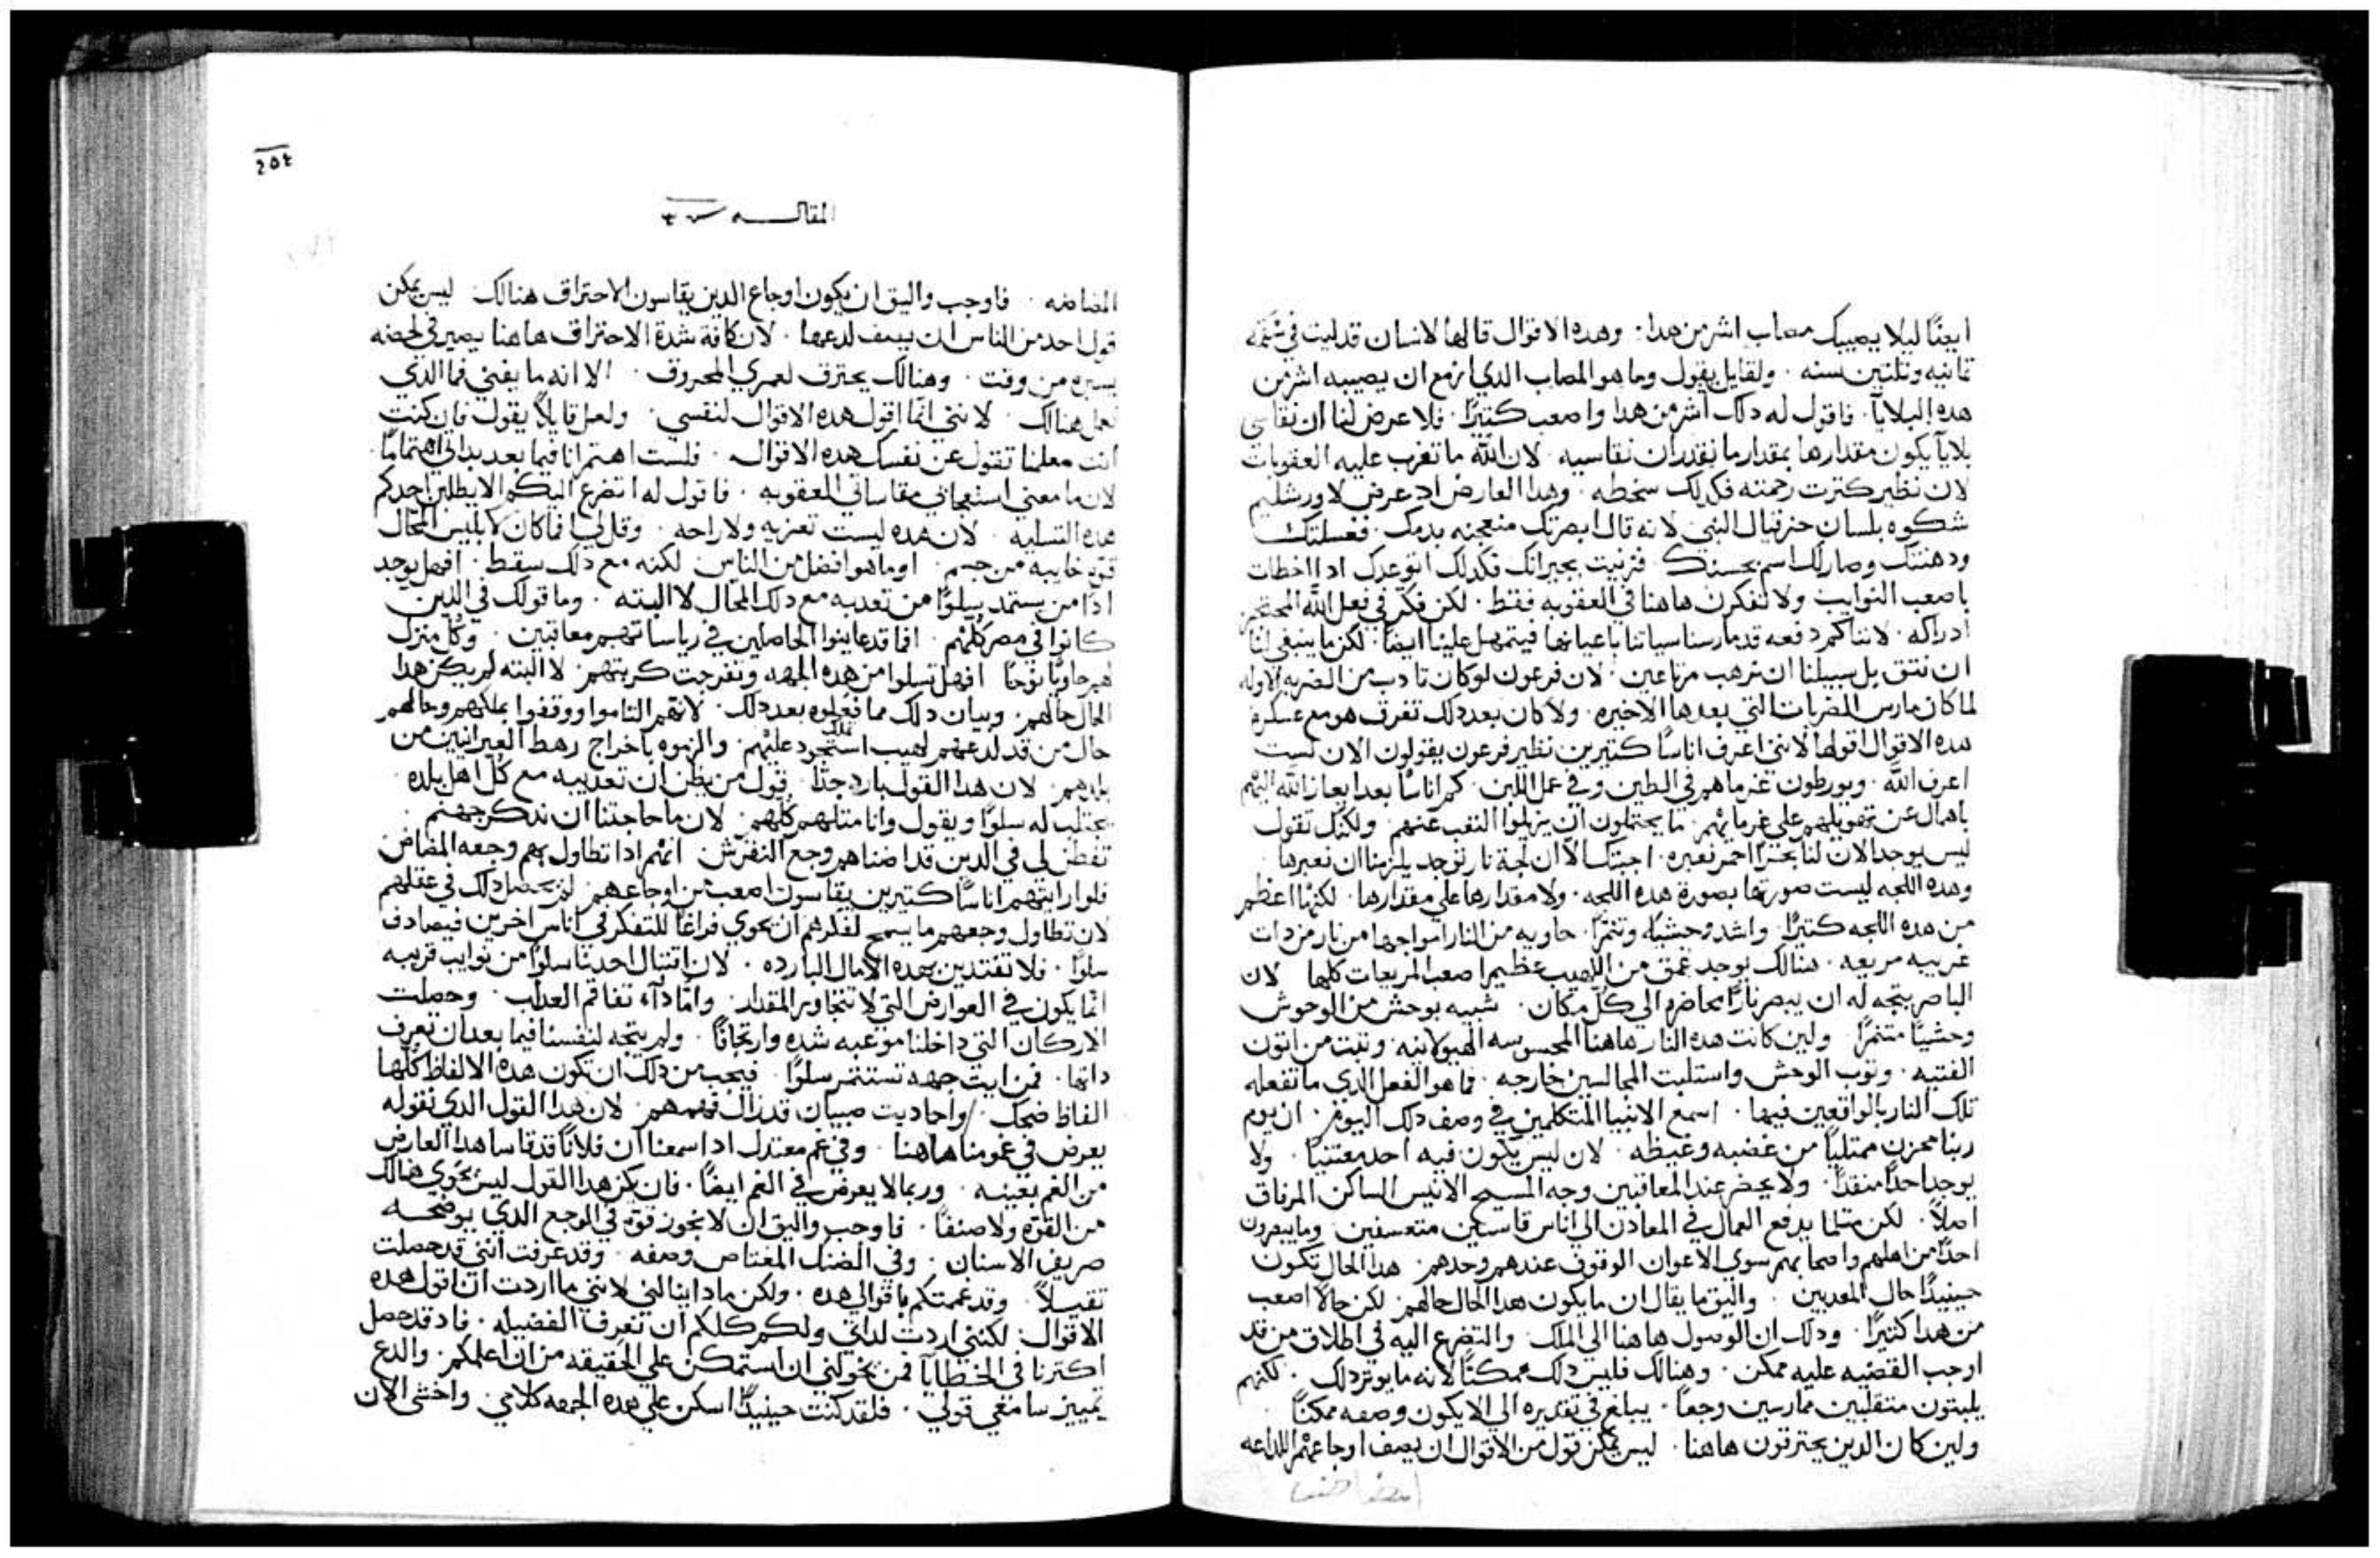 ايضًا ليلا يصيبك مصاب اشر من هدا . وهده الاقوال قالها لانسان قد لبت في سقمه
تمانيه وتلتين سنه . ولقايل يقول وما هو المصاب الدي ازمع ان يصيبه اشر من
هده البلايا . فاقول له دلك اشر من هدا واصعب كتيرًا . فلا عرض لنا ان نقاسي
بلايا يكون مقدارها بمقدار ما نقدر ان نقاسيه . لان الله ما تغرب عليه العقوبات
لان نظير كترت رحمته فكدلك سخطه . وهدا العارض اد عرض لاورشليم
شكوه بلسان حزقيال النبي لانه قال ابصرتك منعجنه بدمك . فغسلتك
ودهنتك وصار لك اسم بحسنك فزنيت بجيرانك فكدلك اتوعدك ادا اخطات
باصعب النوايب ولا تفكرن هاهنا في العقوبه فقط . لكن فكر في فعل الله المحتجز
ادراكه . لاننا كم دفعه قد مارسنا سياتنا باعيانها فيتمهل علينا ايضًا . لكن ما ينبغي لنا
ان نتق بل سبيلنا ان نرهب مرتاعين . لان فرعون لو كان تادب من الضربه الاوله
لما كان مارس الضربات التي بعدها الاخيره . ولا كان بعد دلك تغرق هو مع عسكره
هده الاقوال اقولها لانني اعرف اناسًا كتيرين نظير فرعون يقولون الان لست
اعرف الله . ويورطون غرماهم في الطين وفي عمل اللبن . كم اناسًا بعد ايعاز الله اليهم
باهمال عن تهويلهم علي غرمايهم ما يحتملون ان يزيلوا التعب عنهم ولكنك تقول
ليس يوجد الان لنا بحرًا احمر نعبره . اجبتك الا ان لجة نار توجد يلزمنا ان نعبرها .
وهده اللجه ليست صورتها بصورة هده اللجه . ولا مقدارها علي مقدارها . لكنها اعظم
من هده اللجه كتيرًا . واشد وحشيًا وتنمرًا . حاويه من النار امواجها من نار من دات
غريبه مريعه . هنالك يوجد عمق من اللهيب عظيم اصعب المريعات كلها لان
الباصر يتجه له ان يبصر نارًا محاضره الي كل مكان . شبيه بوحش من الوحوش
وحشيًا متنمرًا . ولين كانت هده النار هاهنا المحسوسه الهيولانيه . وتبت من اتون
الفتيه . وتوب الوحش واستلبت الجالسين خارجه . فما هو الفعل الدي ما تفعله
تلك النار بالواقعين فيها . اسمع الانبيا المتكلمين في وصف دلك اليوم . ان يوم
ربنا محزن ممتليًا من غضبه وغيظه . لان ليس يكون فيه احد معتنيًا . ولا
يوجد احدًا منقدًا . ولا يحضر عند المعاقبين وجه المسيح الانيس الساكن المرفاق
اصلاً . لكن متلما يدفع العمال في المعادن الي اناس قاسيين متعسفين . وما يبصرون
احدًا من اهلهم واصحابهم سوى الاعوان الوقوف عندهم وحدهم . هدا الحال تكون
حينيدًا حال المعدبين . واليق ما يقال ان ما يكون هدا الحال حالهم . لكن حالاً اصعب
من هدا كتيرًا . ودلك ان الوصول هاهنا الي الملك . والتضرع اليه في اطلاق من قد
اوجب القضيه عليه ممكن . وهنالك فليس دلك ممكنًا لانه ما يوتر دلك . لكنهم
يلبتون متقلبين ممارسين وجعًا . يبلغ في تقديره الي الا يكون وصفه ممكنًا .
ولين كان الدين يحترقون هاهنا . ليس يمكن قول من الاقوال ان يصف اوجاعهم اللداعه
٢٥٤
المقاله
المضاضه . فاوجب واليق ان يكون اوجاع الدين يقاسون الاحتراق هنالك . ليس يمكن
قول احد من الناس ان يصف لدعها . لان كافة شدة الاحتراق هاهنا يصير في لحضه
يسيره من وقت . وهنالك يحترق لعمري المحروق . الا انه ما يفني فما الدي
نعمل هنالك . لانني انما اقول هده الاقوال لنفسي . ولعل قايلاً يقول فان كنت
انت معلمنا تقول عن نفسك هده الاقوال . فلست اهتم انا فيما بعد بداتي اهتمامًا .
لان ما معني استعجابي مقاساتي العقوبه . فاقول له اتضرع اليكم الا يطلبن احدكم
هده التسليه . لان هده ليست تعزيه ولا راحه . وقل لي افما كان لابليس المحال
قوه خايبه من جسم . اوما هو افضل من الناس لكنه مع دلك سقط . افهل يوجد
ادًا من يستمد سلوًا من تعدبه مع دلك المحال لا البته . وما قولك في الدين
كانوا في مصر كلهم . افما قد عاينوا الحاصلين في رياساتهم معاقبين . وكل منزل
لهم حاويًا نوحًا افهل تسلوا من هده الجهه وتفرجت كربتهم لا البته لم يكن هدا
الحال حالهم . وبيان دلك مما فعلوه بعد دلك . لانهم التاموا ووقفوا بملكهم وحالهم
حال من قد لدعهم لهيب استحود عليهم . والزموه باخراج رهط العبرانيين من
بلدهم . لان هدا القول بارد جدًا . قول من يظن ان تعديبه مع كل اهل بلده
يجتلب له سلوًا ويقول وانا متلهم كلهم . لان ما حاجتنا ان ندكر جهنم .
تفطن لي في الدين قد اضناهم وجع النقرس انهم ادا تطاول بهم وجعه المضاض
فلو ارايتهم اناسًا كتيرين يقاسون اصعب من اوجاعهم لم يحصل دلك في عقلهم
لان تطاول وجعهم ما يسمح لفكرهم ان يحوي فراغًا للتفكر في اناس اخرين فيصادف
سلوًا . فلا نغتدين بهده الامال البارده . لان اقتبال احدنا سلوًا من نوايب قريبه
انما يكون في العوارض التي لا تتجاوز المقدار . وامّا دآء تفاقم العداب . وحصلت
الاركان التي داخلنا موعبه شده وارتجافًا . ولم يتجه لنفسنا فيما بعد ان تعرف
داتها . فمن ايت جهه تستتمر سلوًا . فيجب من دلك ان تكون هده الالفاظ كلها
الفاظ ضحك . واحاديت صبيان قد زال فهمهم . لان هدا القول الدي تقوله
يعرض في غمومنا هاهنا . وفي غم معتدل ادا سمعنا ان فلانًا قد قاسا هدا العارض
من الغم بعينه . وربما لا يعرض في الغم ايضًا . فان يكن هدا القول ليس يحوي هنالك
من القوه ولا صنفًا . فاوجب واليق ان لا نحوز قوه في الوجع الدي يوضحه
صريف الاسنان . وفي الضنك المغتاص وصفه . وقد عرفت انني قد حصلت
تقيلاً . وقد غممتكم باقوالي هده . ولكن مادا ينالني لانني ما اردت ان اقول هده
الاقوال . لكنني اردت لداتي ولكم كلكم ان نعرف الفضيله . فاد قد حصل
اكترنا في الخطايا فمن يخولني ان استمكن علي الحقيقه من ان اعلمكم . والدع
تمييز سامعي قولي . فلقد كنت حينيدًا اسكن علي هده الجهه كلامي . واخشي الان